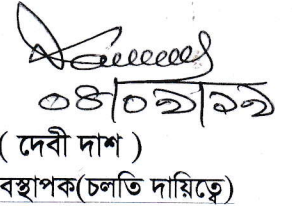 ০৪/০৯/২২
( দেবী দাশ )
বস্থাপক(চলতি দায়িত্বে)